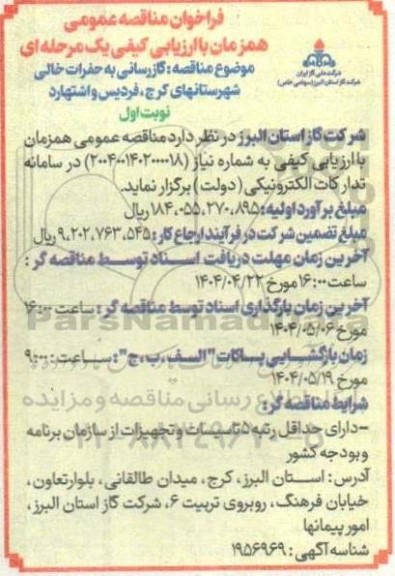 فراخوان مناقصه عمومی
همزمان با ارزیابی کیفی یک مرحله ای
شرکت ملی گاز ایران
شرکت گاز استان البرز (سهامی خاص)
موضوع مناقصه: گازرسانی به حفرات خالی
شهرستانهای کرج، فردیس و اشتهارد
نوبت اول
شرکت گاز استان البرز در نظر دارد مناقصه عمومی همزمان
با ارزیابی کیفی به شماره نیاز (۲۰۰۴۰۰۱۴۰۲۰۰۰۰۱۸) در سامانه
تدارکات الکترونیکی (دولت) برگزار نماید.
مبلغ برآورد اولیه: ۱۸۴،۰۵۵،۲۷۰،۸۹۵ ریال
مبلغ تضمین شرکت در فرآیند ارجاع کار: ۹،۲۰۲،۷۶۳،۵۴۵ ریال
آخرین زمان مهلت دریافت اسناد توسط مناقصه گر:
ساعت ۱۶:۰۰ مورخ ۱۴۰۴/۰۴/۲۲
آخرین زمان بارگذاری اسناد توسط مناقصه گر: ساعت ۱۶:۰۰
مورخ ۱۴۰۴/۰۵/۰۶
زمان بازگشایی پاکات "الف، ب، ج": ساعت: ۹:۰۰
مورخ ۱۴۰۴/۰۵/۱۹
شرایط مناقصه گر:
-دارای حداقل رتبه ۵ تاسیسات و تجهیزات از سازمان برنامه
و بودجه کشور
آدرس: استان البرز، کرج، میدان طالقانی، بلوار تعاون،
خیابان فرهنگ، روبروی تربیت ۶، شرکت گاز استان البرز،
امور پیمانها
شناسه آگهی: ۱۹۵۶۹۶۹
ParsNamad